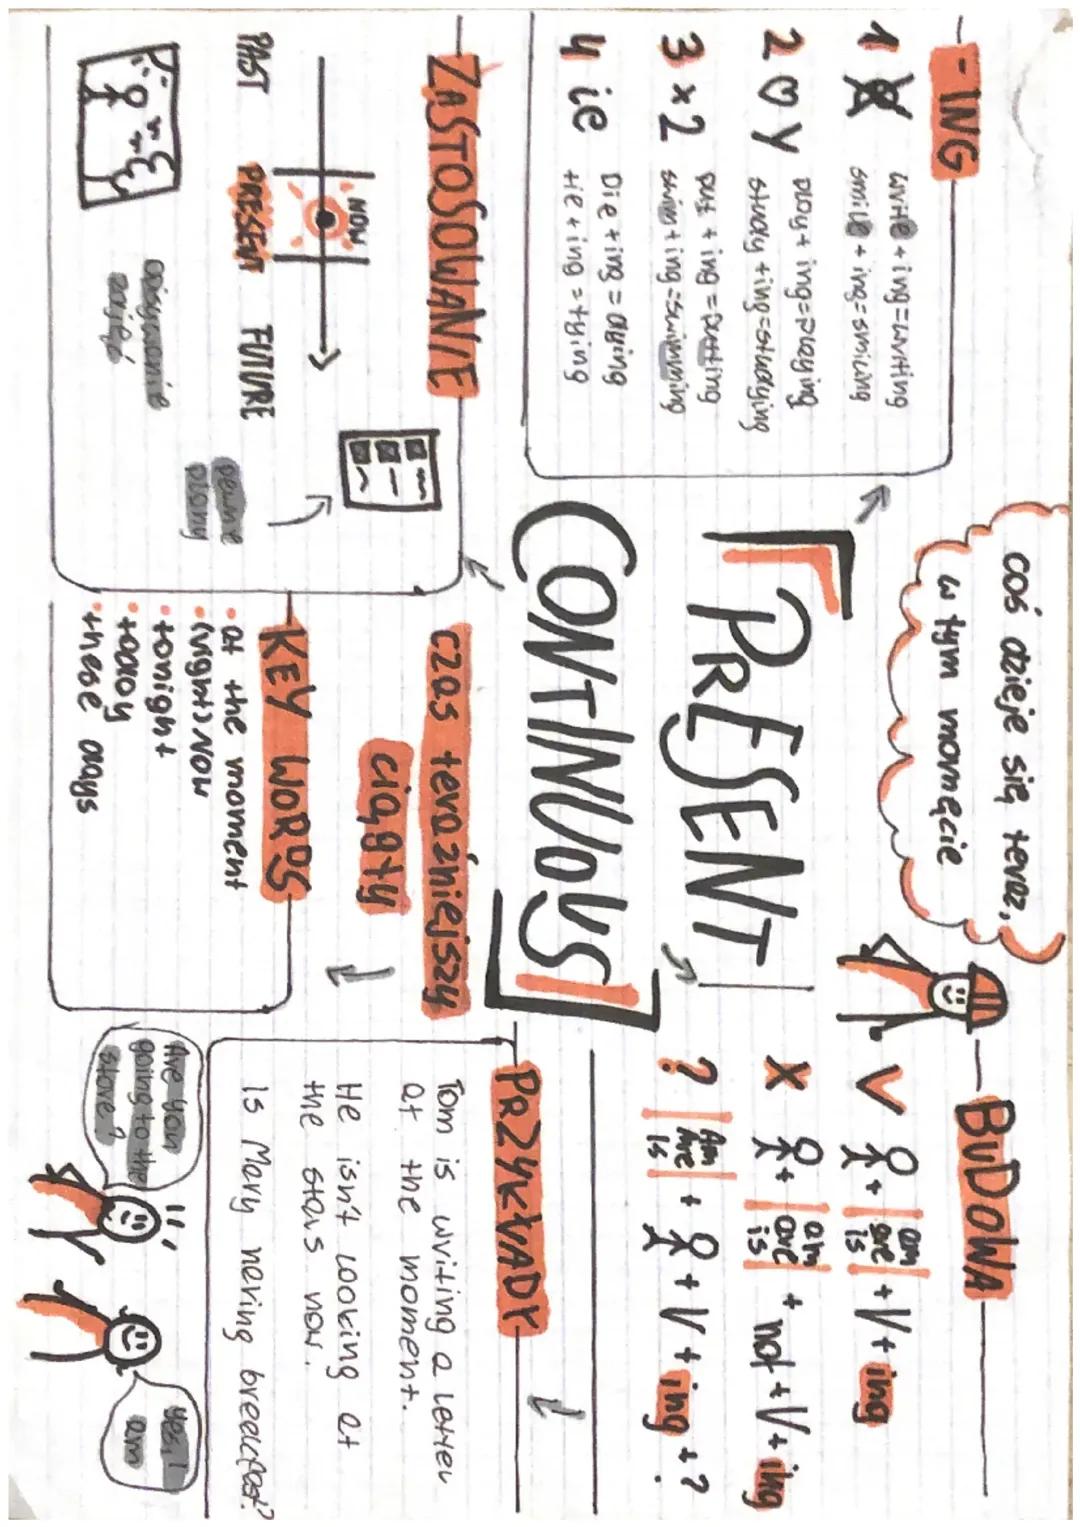 -ING
1 e
write + ing = writing
smile + ing = smiling
2 y
play + ing = playing
study + ing = studying
3 x2
put + ing = putting
swim + ing = swimming
4 ie
Die + ing = dying
tie + ing = tying
coś dzieje się teraz,
w tym momęcie
PRESENT
CONTINUOUS
czas teraźniejszy
ciągły
BUDOWA
V + am are is + V + ing
X + am are is + not + V + ing
? Am Are Is + + V + ing + ?
ZASTOSOWANIE
NOW
PAST PRESENT FUTURE
pewne
plany
KEY WORDS
• at the moment
• (right) NOW
• tonight
• today
• these days
PRZYKŁADY
Tom is writing a letter
at the moment.
He isn't looking at
the stars now.
Is Mary having breakfast?
Are you
going to the
store?
yes, I
am